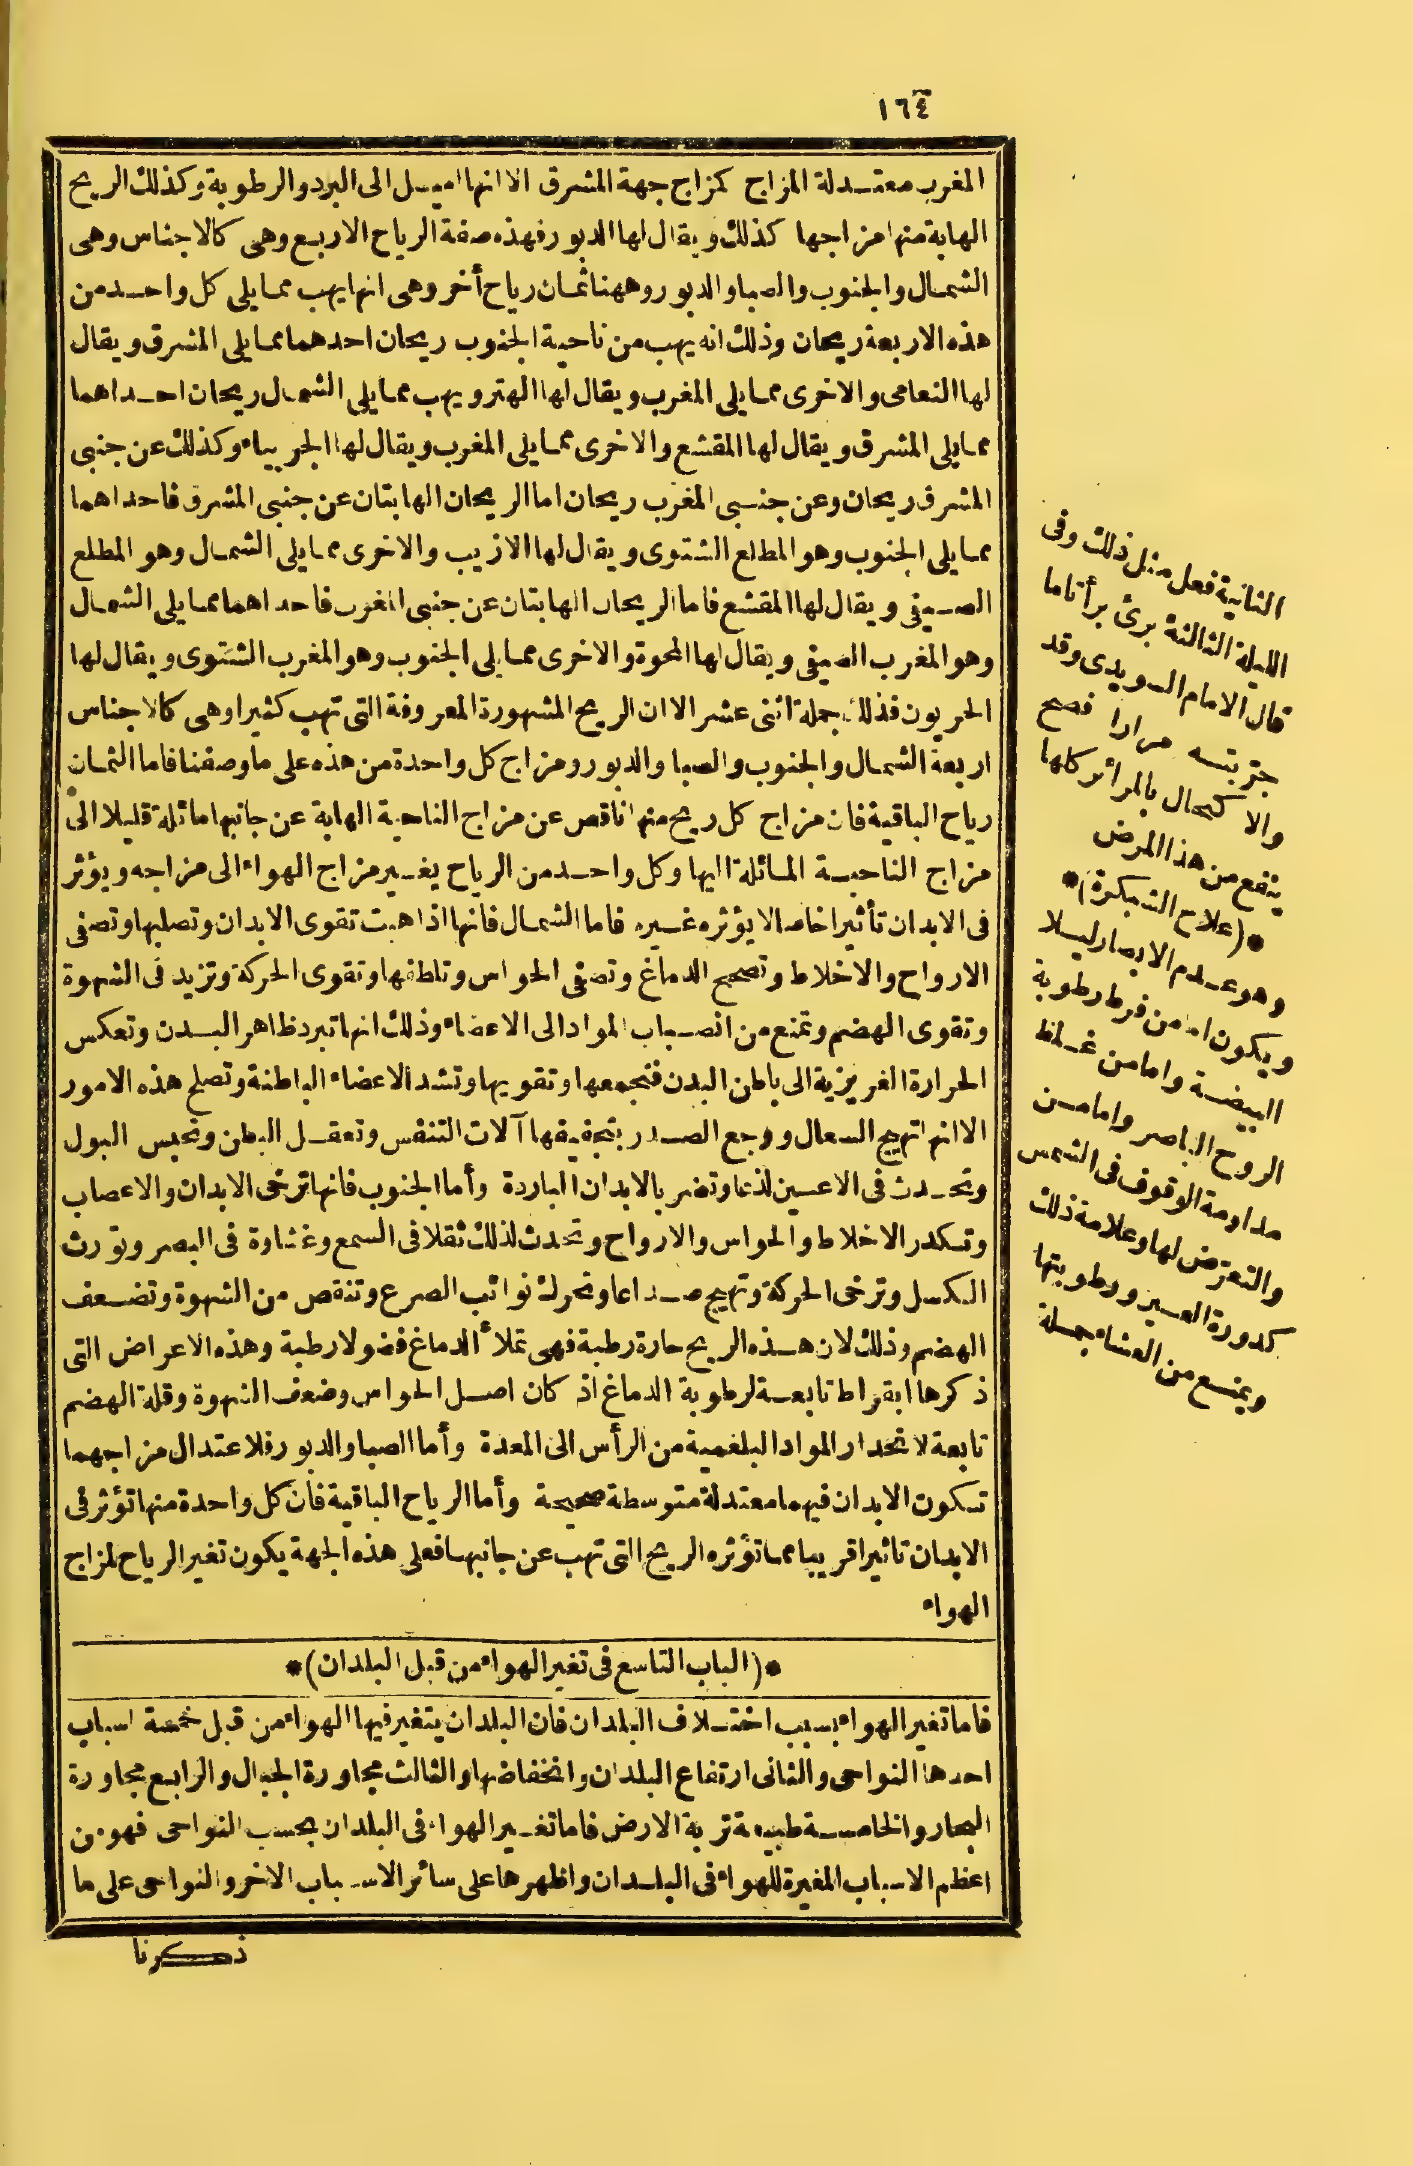 ١٦٤
المغرب معتدلة المزاج كمزاج جهة المشرق الا انها اميل الى البرد والرطوبة وكذلك الريح
الهابة منها مزاجها كذلك ويقال لها الدبور فهذه صفة الرياح الاربع وهى كالاجناس وهى
الشمال والجنوب والصبا والدبور وههنا ثمان رياح أخر وهى انها يهب مما يلى كل واحد من
هذه الاربعة ريحان وذلك انه يهب من ناحية الجنوب ريحان احدهما مما يلى المشرق ويقال
لها النعامى والاخرى مما يلى المغرب ويقال لها الهتر ويهب مما يلى الشمال ريحان احداهما
مما يلى المشرق ويقال لها المقشع والاخرى مما يلى المغرب ويقال لها الجربياء وكذلك عن جنبى
المشرق ريحان وعن جنبى المغرب ريحان اما الريحان الهابتان عن جنبى المشرق فاحداهما
مما يلى الجنوب وهو المطلع الشتوى ويقال لها الازيب والاخرى مما يلى الشمال وهو المطلع
الصيفى ويقال لها المقشع فاما الريحان الهابتان عن جنبى المغرب فاحداهما مما يلى الشمال
وهو المغرب الصيفى ويقال لها المحوة والاخرى مما يلى الجنوب وهو المغرب الشتوى ويقال لها
الحريون فذلك جملة اثنى عشر الا ان الريح المشهورة المعروفة التى تهب كثيرا وهى كالاجناس
اربعة الشمال والجنوب والصبا والدبور ومزاج كل واحدة من هذه على ما وصفنا فاما الثمان
رياح الباقية فان مزاج كل ريح منها ناقص عن مزاج الناحية الهابة عن جانبها مائلة قليلا الى
مزاج الناحية المائلة اليها وكل واحد من الرياح يغير مزاج الهواء الى مزاجه ويؤثر
فى الابدان تأثيرا خاصا لا يؤثره غيره فاما الشمال فانها اذا هبت تقوى الابدان وتصلبها وتصفى
الارواح والاخلاط وتصحح الدماغ وتصفى الحواس وتلطفها وتقوى الحركة وتزيد فى الشهوة
وتقوى الهضم وتمنع من انصباب المواد الى الاعضاء وذلك انها تبرد ظاهر البدن وتعكس
الحرارة الغريزية الى باطن البدن فتجمعها وتقويها وتشد الاعضاء الباطنة وتصلح هذه الامور
الا انها تهيج السعال ووجع الصدر بتجفيفها آلات التنفس وتعقل البطن وتحبس البول
وتحدث فى الاعين لذعا وتضر بالابدان الباردة وأما الجنوب فانها ترخى الابدان والاعصاب
وتكدر الاخلاط والحواس والارواح وتحدث لذلك ثقلا فى السمع وغشاوة فى البصر وتورث
الكسل وترخى الحركة وتهيج صداعا وتحرك نوائب الصرع وتنقص من الشهوة وتضعف
الهضم وذلك لان هذه الريح حارة رطبة فهى تملأ الدماغ فضولا رطبة وهذه الاعراض التى
ذكرها ابقراط تابعة لرطوبة الدماغ اذ كان اصل الحواس وضعف الشهوة وقلة الهضم
تابعة لانحدار المواد البلغمية من الرأس الى المعدة وأما الصبا والدبور فلاعتدال مزاجهما
تكون الابدان فيهما معتدلة متوسطة صحيحة وأما الرياح الباقية فان كل واحدة منها تؤثر فى
الابدان تاثيرا قريبا مما تؤثره الريح التى تهب عن جانبها فعلى هذه الجهة يكون تغير الرياح لمزاج
الهواء
*(الباب التاسع فى تغير الهواء من قبل البلدان)*
فاما تغير الهواء بسبب اختلاف البلدان فان البلدان يتغير فيها الهواء من قبل خمسة اسباب
احدها النواحى والثانى ارتفاع البلدان وانخفاضها والثالث مجاورة الجبال والرابع مجاورة
البحار والخامسة طبيعة تربة الارض فاما تغيير الهواء فى البلدان بحسب النواحى فهو من
اعظم الاسباب المغيرة للهواء فى البلدان واظهرها على سائر الاسباب الاخر والنواحى على ما
ذكرنا
الثانية فعل مثل ذلك وفى
الليلة الثالثة برئ برأ تاما
قال الامام السويدى وقد
جربته مرارا فصح
والاكتحال بالمرائر كلها
ينفع من هذا المرض
*(علاج الشبكرة)*
وهو عدم الابصار ليلا
ويكون اما من فرط رطوبة
البيضة واما من غلظ
الروح الباصر واما من
مداومة الوقوف فى الشمس
والتعرض لها وعلامة ذلك
كدورة العين ورطوبتها
ويمنع من العشاء جملة